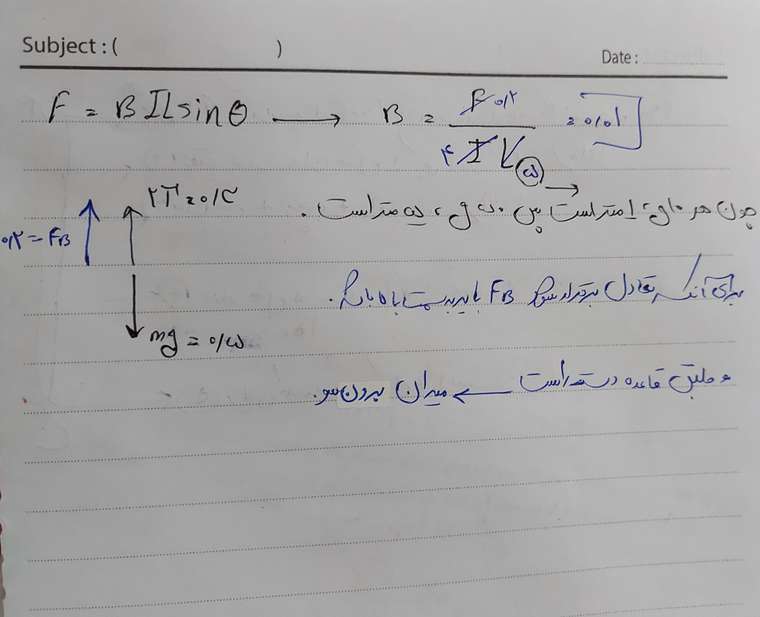 Subject : ( )
Date :
F = B I L sin θ → B = F ۰/۲ / ۴ I L ۵ = ۰/۰۱
۲T = ۰/۳
چون هر ۱۰ ... ۱ متر است پس ۵۰ ... ۵ متر است.
۰/۲ = FB
برای آنکه تعادل برقرار شود FB باید به سمت بالا باشد.
mg = ۰/۵
و طبق قاعده دست راست ← میدان برون سو.